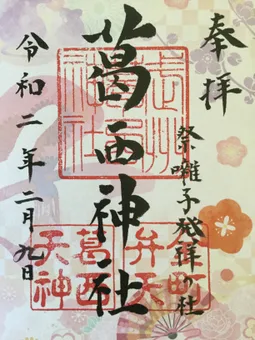 奉拝
祭囃子発祥の社
葛西神社
令和二年二月九日
葛西
天神
町
弁天